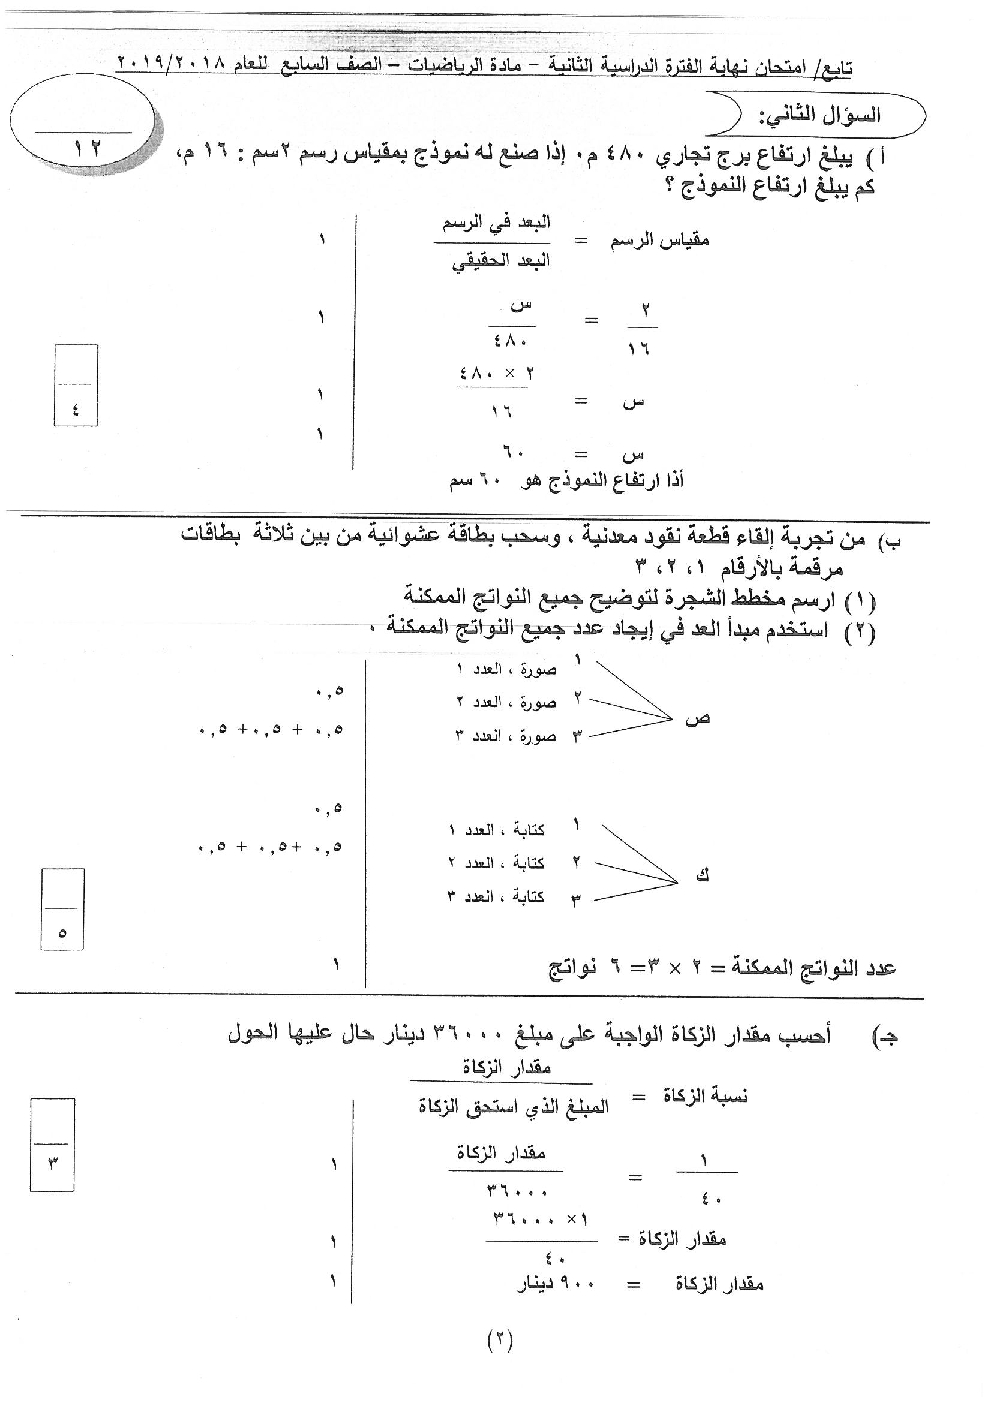 تابع/ امتحان نهاية الفترة الدراسية الثانية – مادة الرياضيات – الصف السابع للعام ٢٠١٨/٢٠١٩
السؤال الثاني:
١٢
أ) يبلغ ارتفاع برج تجاري ٤٨٠ م، إذا صنع له نموذج بمقياس رسم ٢سم : ١٦ م،
كم يبلغ ارتفاع النموذج ؟
مقياس الرسم = البعد في الرسم / البعد الحقيقي ١
٢ / ١٦ = س / ٤٨٠ ١
س = ٢ × ٤٨٠ / ١٦ ١
٤
س = ٦٠ ١
أذا ارتفاع النموذج هو ٦٠ سم
ب) من تجربة إلقاء قطعة نقود معدنية ، وسحب بطاقة عشوائية من بين ثلاثة بطاقات
مرقمة بالأرقام ١، ٢، ٣
(١) ارسم مخطط الشجرة لتوضيح جميع النواتج الممكنة
(٢) استخدم مبدأ العد في إيجاد عدد جميع النواتج الممكنة .
١ صورة ، العدد ١ ٠,٥
ص ٢ صورة ، العدد ٢
٣ صورة ، العدد ٣ ٠,٥ + ٠,٥ + ٠,٥
٠,٥
١ كتابة ، العدد ١
ك ٢ كتابة ، العدد ٢ ٠,٥ + ٠,٥ + ٠,٥
٣ كتابة ، العدد ٣
٥
عدد النواتج الممكنة = ٢ × ٣= ٦ نواتج ١
جـ) أحسب مقدار الزكاة الواجبة على مبلغ ٣٦٠٠٠ دينار حال عليها الحول
نسبة الزكاة = مقدار الزكاة / المبلغ الذي استحق الزكاة
١ / ٤٠ = مقدار الزكاة / ٣٦٠٠٠ ١
٣
مقدار الزكاة = ١× ٣٦٠٠٠ / ٤٠ ١
مقدار الزكاة = ٩٠٠ دينار ١
(٢)